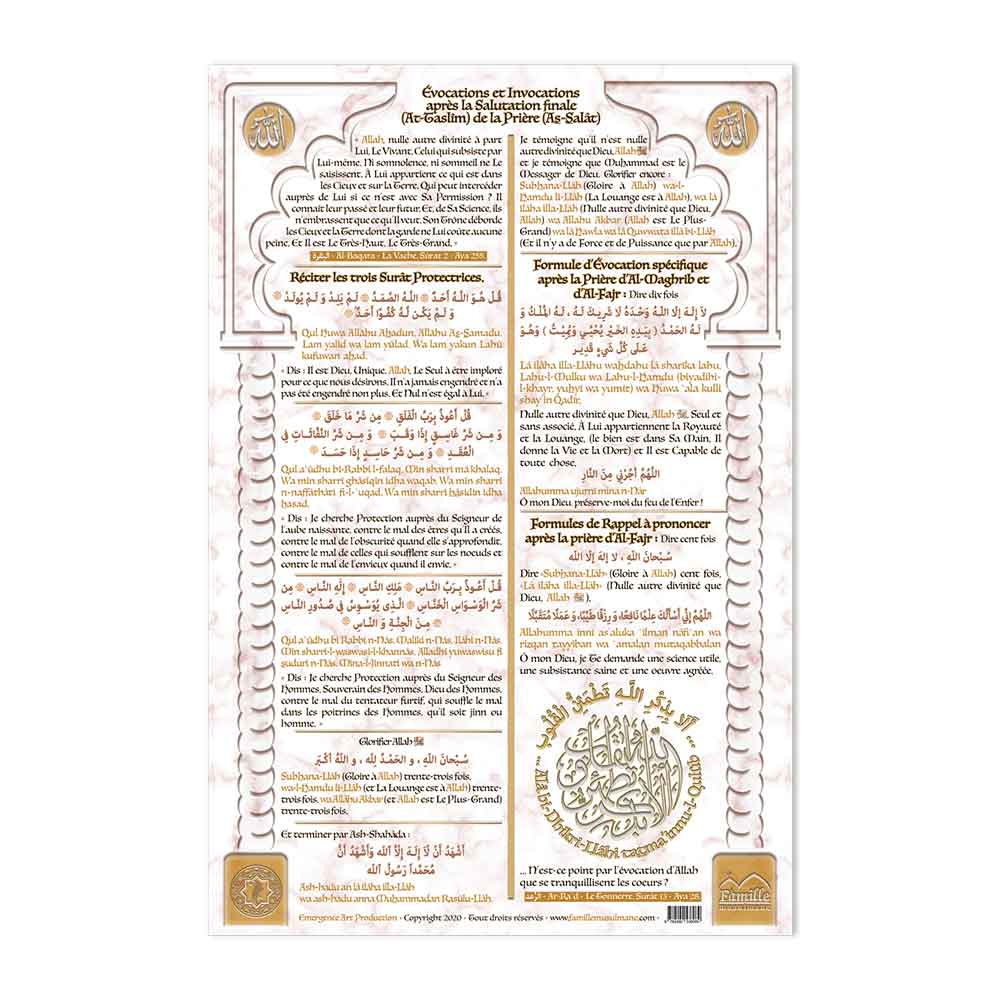 Évocations et Invocations
après la Salutation finale
(At-Taslîm) de la Prière (As-Salât)
الله
الله
« Allah, nulle autre divinité à part
Lui, Le Vivant, Celui qui subsiste par
Lui-même. Ni somnolence, ni sommeil ne Le
saisissent. À Lui appartient ce qui est dans
les Cieux et sur la Terre. Qui peut intercéder
auprès de Lui si ce n'est avec Sa Permission ? Il
connait leur passé et leur futur. Et, de Sa Science, ils
n'embrassent que ce qu'Il veut. Son Trône déborde
les Cieux et la Terre dont la garde ne Lui coûte aucune
peine. Et Il est Le Très-Haut, Le Très-Grand. »
البقرة - Al-Baqara - La Vache, Sûrat 2 - Aya 255.
Réciter les trois Surât Protectrices.
قُلْ هُوَ اللَّهُ أَحَدٌ ۞ اللَّهُ الصَّمَدُ ۞ لَمْ يَلِدْ وَ لَمْ يُولَدْ ۞
وَ لَمْ يَكُن لَّهُ كُفُوًا أَحَدٌ ۞
Qul Huwa Allâhu Aḥadun, Allâhu Aṣ-Ṣamadu,
Lam yalid wa lam yûlad, Wa lam yakun Lahû
kufuwan aḥad.
« Dis : Il est Dieu, Unique, Allah, Le Seul à être imploré
pour ce que nous désirons. Il n'a jamais engendré et n'a
pas été engendré non plus. Et Nul n'est égal à Lui. »
قُلْ أَعُوذُ بِرَبِّ الْفَلَقِ ۞ مِن شَرِّ مَا خَلَقَ ۞
وَ مِن شَرِّ غَاسِقٍ إِذَا وَقَبَ ۞ وَ مِن شَرِّ النَّفَّاثَاتِ فِي
الْعُقَدِ ۞ وَ مِن شَرِّ حَاسِدٍ إِذَا حَسَدَ ۞
Qul a'ûdhu bi-Rabbi l-falaq, Min sharri mâ khalaq,
Wa min sharri ghâsiqin idha waqab, Wa min sharri
n-naffâthâti fi-l-'uqad, Wa min sharri ḥâsidin idha
ḥasad.
« Dis : Je cherche Protection auprès du Seigneur de
l'aube naissante, contre le mal des êtres qu'Il a créés,
contre le mal de l'obscurité quand elle s'approfondit,
contre le mal de celles qui soufflent sur les noeuds et
contre le mal de l'envieux quand il envie. »
قُلْ أَعُوذُ بِرَبِّ النَّاسِ ۞ مَلِكِ النَّاسِ ۞ إِلَٰهِ النَّاسِ ۞ مِن
شَرِّ الْوَسْوَاسِ الْخَنَّاسِ ۞ الَّذِي يُوَسْوِسُ فِي صُدُورِ النَّاسِ
۞ مِنَ الْجِنَّةِ وَ النَّاسِ ۞
Qul a'ûdhu bi Rabbi n-Nâs, Maliki n-Nâs, Ilâhi n-Nâs,
Min sharri-l-waswasi-l-khannâs, Alladhi yuwaswisu fi
ṣuduri n-Nâs, Mina-l-Jinnati wa n-Nâs
« Dis : Je cherche Protection auprès du Seigneur des
Hommes, Souverain des Hommes, Dieu des Hommes,
contre le mal du tentateur furtif, qui souffle le mal
dans les poitrines des Hommes, qu'il soit jinn ou
homme. »
Glorifier Allah ﷻ
سُبْحَانَ اللَّهِ ، و الحَمْدُ لِلَّه ، و اللَّهُ أَكْبَر
Subḥana-Llâh (Gloire à Allah) trente-trois fois,
wa-l-Ḥamdu li-Llâh (et La Louange est à Allah) trente-
trois fois, wa Allâhu Akbar (et Allah est Le Plus-Grand)
trente-trois fois.
Et terminer par Ash-Shahâda :
أَشْهَدُ أَنْ لَا إِلَهَ إِلَّا اللَّه وَأَشْهَدُ أَنَّ
مُحَمَّداً رَسُولُ اللَّه
Ash-hadu an lâ ilâha illa-Llâh
wa ash-hadu anna Muḥammadan Rasûlu-Llâh
Je témoigne qu'il n'est nulle
autre divinité que Dieu, Allah ﷻ
et je témoigne que Muḥammad est le
Messager de Dieu. Glorifier encore :
Subḥana-Llâh (Gloire à Allah) wa-l-
Ḥamdu li-Llâh (La Louange est à Allah), wa lâ
ilâha illa-Llâh (Nulle autre divinité que Dieu,
Allah) wa Allahu Akbar (Allah est Le Plus-
Grand) wa lâ Ḥawla wa lâ Quwwata illâ bi-Llâh
(Et il n'y a de Force et de Puissance que par Allah).
Formule d'Évocation spécifique
après la Prière d'Al-Maghrib et
d'Al-Fajr : Dire dix fois
لَا إِلَهَ إِلَّا اللَّهُ وَحْدَهُ لَا شَرِيكَ لَهُ ، لَهُ الْمُلْكُ وَ
لَهُ الْحَمْدُ ( بِيَدِهِ الْخَيْرُ يُحْيِي وَ يُمِيتُ ) وَهُوَ
عَلَى كُلِّ شَيْءٍ قَدِير
Lâ ilâha illa-Llâhu waḥdahu lâ sharîka lahu,
Lahu-l-Mulku wa Lahu-l-Ḥamdu (biyadihi-
l-khayr, yuḥyî wa yumît) wa Huwa 'ala kulli
shay in Qadîr.
Nulle autre divinité que Dieu, Allah ﷻ, Seul et
sans associé. À Lui appartiennent la Royauté
et la Louange, (le bien est dans Sa Main, Il
donne la Vie et la Mort) et Il est Capable de
toute chose.
اللَّهُمَّ أَجِرْنِي مِنَ النَّارِ
Allahumma ujurnî mina n-Nâr
Ô mon Dieu, préserve-moi du feu de l'Enfer !
Formules de Rappel à prononcer
après la prière d'Al-Fajr : Dire cent fois
سُبْحَانَ اللَّهِ ، لا إِلهَ إِلَّا اللَّه
Dire «Subḥana-Llâh» (Gloire à Allah) cent fois,
«Lâ ilâha illa-Llâh» (Nulle autre divinité que
Dieu, Allah ﷻ).
اللَّهُمَّ إِنِّي أَسْأَلُكَ عِلْمًا نَافِعًا، وَ رِزْقًا طَيِّبًا، وَ عَمَلًا مُتَقَبَّلًا
Allahumma innî as-aluka 'ilman nâfi'an wa
rizqan ṭayyiban wa 'amalan mutaqabbalan
Ô mon Dieu, je Te demande une science utile,
une subsistance saine et une oeuvre agréée.
... أَلَا بِذِكْرِ اللَّهِ تَطْمَئِنُّ الْقُلُوبُ
... Alâ bi-Dhikri-Llâhi taṭma'innu-l-Qulûb
... N'est-ce point par l'évocation d'Allah
que se tranquillisent les coeurs ?
الرعد - Ar-Ra'd - Le Tonnerre, Surât 13 - Aya 28.
Famille
musulmane
Emergence Art Production - Copyright 2020 - Tout droits réservés - www.famillemusulmane.com -